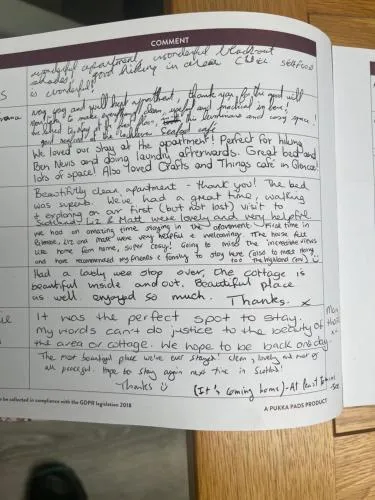 COMMENT
wonderful apartment, wonderful blackout
shades, good hiking in area. Chill seafood
is wonderful!
very cosy and well kept apartment, thank you for the good will
to make everything clean, useful and practical in here!
We loved our stay at the apartment! Perfect for hiking
Ben Nevis and doing laundry afterwards. Great bed and
lots of space! Also loved Crafts and Things cafe in Glencoe!
Beautifully clean apartment - thank you! The bed
was superb. We've had a great time, walking
+ exploring on our first (but not last) visit to
Scotland. Liz & Matt were lovely and very helpful
we had an amazing time staying in the apartment - First time in
Liz and Matt were very helpful & welcoming. The house felt
like home from home, super cosy! Going to miss the incredible views
and have recommended my friends & family to stay here (also to meet
too the highland cow)
Had a lovely wee stop over, the cottage is
beautiful inside and out. Beautiful place
as well. enjoyed so much. Thanks. x
It was the perfect spot to stay.
My words can't do justice to the beauty of
the area or cottage. We hope to be back one day.
The most beautiful place we've ever stayed! Clean, lovely and most of
all peaceful. Hope to stay again next time in Scotland!
Thanks
(It's coming home) - At least
to be collected in compliance with the GDPR legislation 2018
A PUKKA PADS PRODUCT